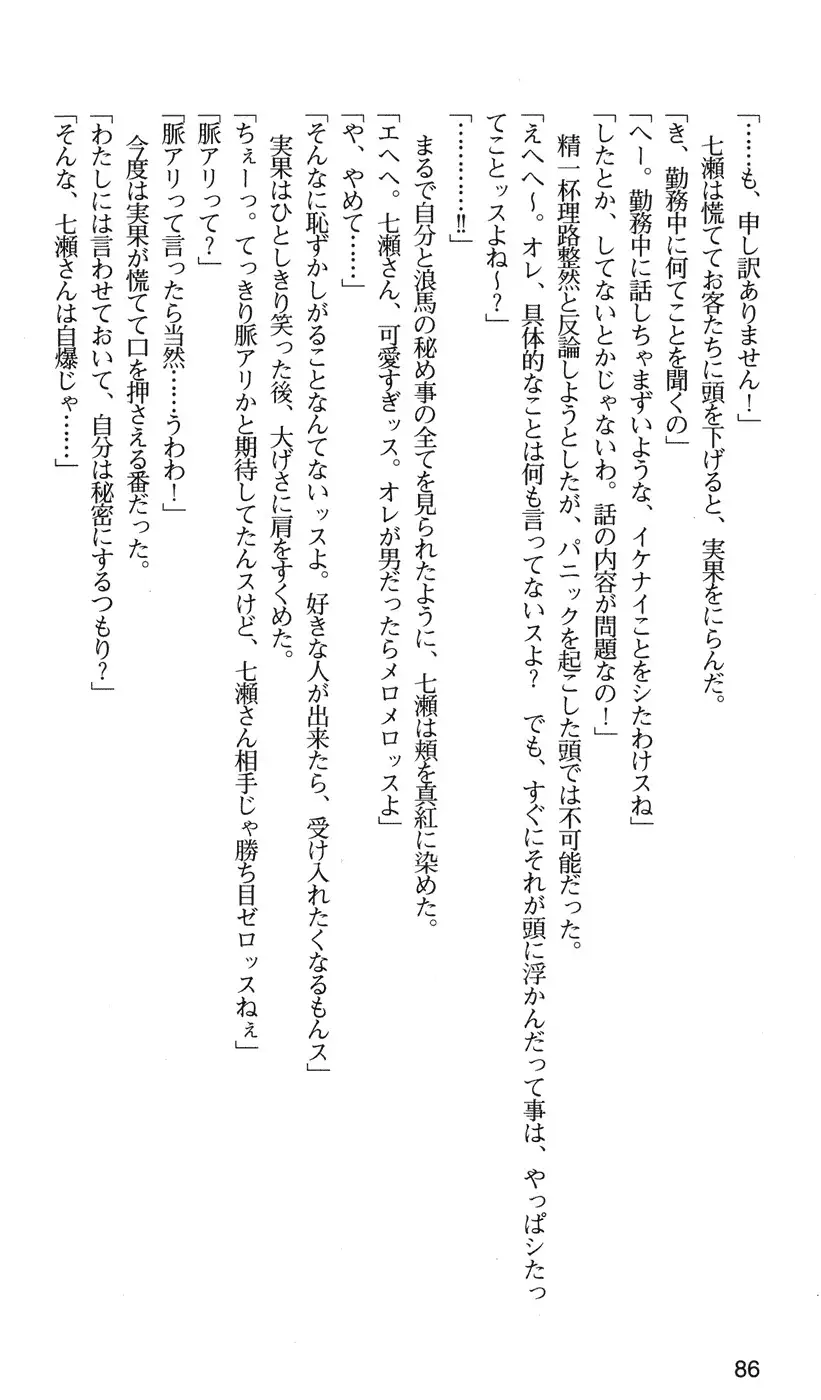 「……も、申し訳ありません！」
　七瀬は慌ててお客たちに頭を下げると、実果をにらんだ。
「き、勤務中に何てことを聞くの」
「へー。勤務中に話しちゃまずいような、イケナイことをシたわけスね」
「したとか、してないとかじゃないわ。話の内容が問題なの！」
　精一杯理路整然と反論しようとしたが、パニックを起こした頭では不可能だった。
「えへへ～。オレ、具体的なことは何も言ってないスよ？　でも、すぐにそれが頭に浮かんだって事は、やっぱシたっ
てことッスよね～？」
「…………!!」
　まるで自分と浪馬の秘め事の全てを見られたように、七瀬は頬を真紅に染めた。
「エヘヘ。七瀬さん、可愛すぎッス。オレが男だったらメロメロッスよ」
「や、やめて……」
「そんなに恥ずかしがることなんてないッスよ。好きな人が出来たら、受け入れたくなるもんス」
　実果はひとしきり笑った後、大げさに肩をすくめた。
「ちぇーっ。てっきり脈アリかと期待してたんスけど、七瀬さん相手じゃ勝ち目ゼロッスねぇ」
「脈アリって？」
「脈アリって言ったら当然……うわわ！」
　今度は実果が慌てて口を押さえる番だった。
「わたしには言わせておいて、自分は秘密にするつもり？」
「そんな、七瀬さんは自爆じゃ……」
86